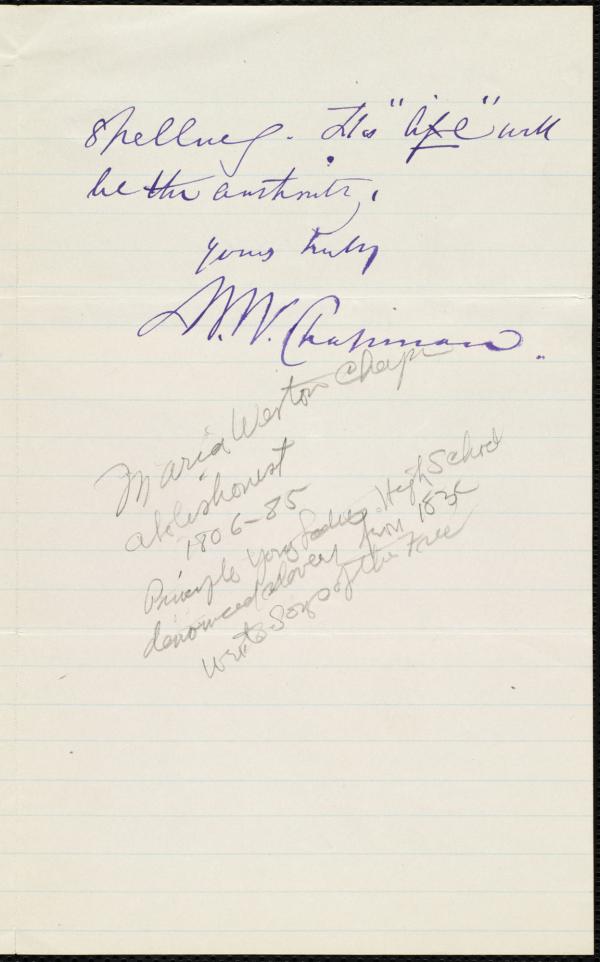 Spelling. His "Life" will
be the authority.
Yours truly
M. W. Chapman.
Maria Weston Chap
abolishonest
1806-85
Principle Young Ladies High School
denounced slavery from 183
write Songs of the Free